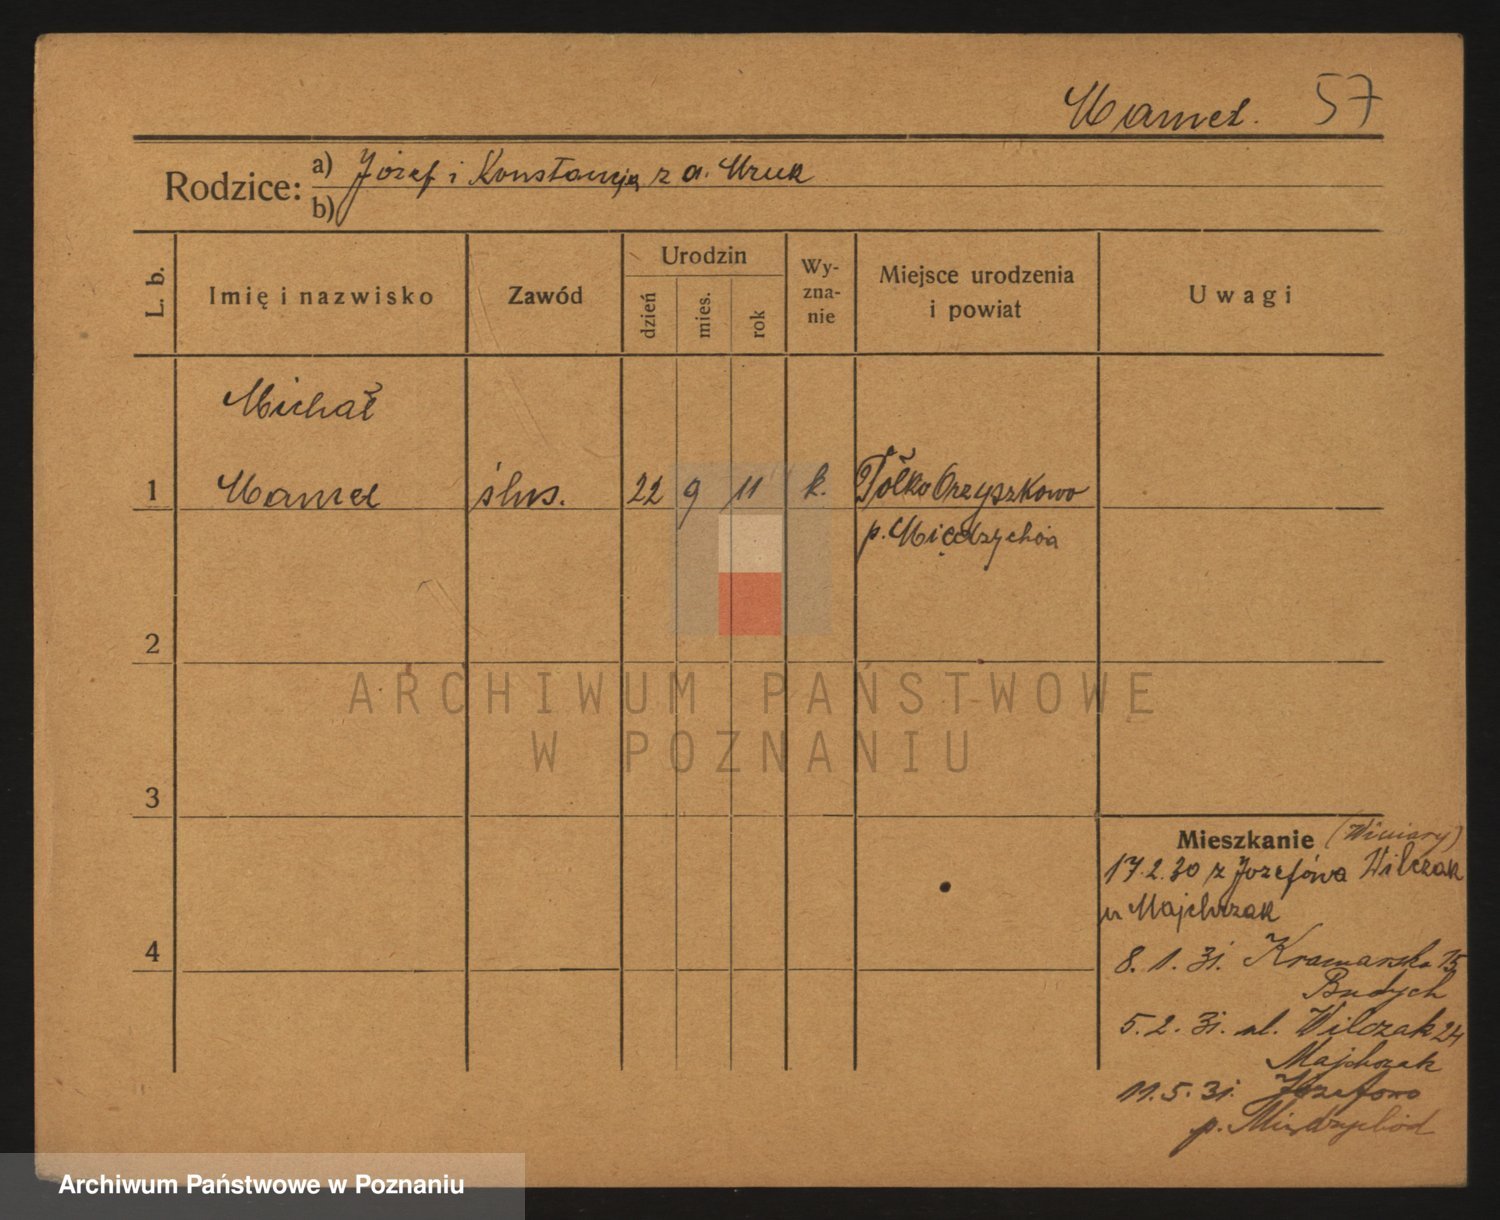 Mamet. 57
Rodzice: a) Józef i Konstancja z d. Mruk
b)
L. b. Imię i nazwisko Zawód Urodzin dzień mies. rok Wy-zna-nie Miejsce urodzenia i powiat Uwagi
Michał
1 Mamet ślus. 22 9 11 k. Orzyszkowo
p. Międzychód
2
3
4
ARCHIWUM PAŃSTWOWE
W POZNANIU
Mieszkanie (Winiary)
17.2.30 z Józefowa Wilczak
u Majchrzak
8. 1. 31. Kramarska 15
Budych
5. 2. 31. ul. Wilczak 24
Majchrzak
11. 5. 31. Józefowo
p. Międzychód
Archiwum Państwowe w Poznaniu